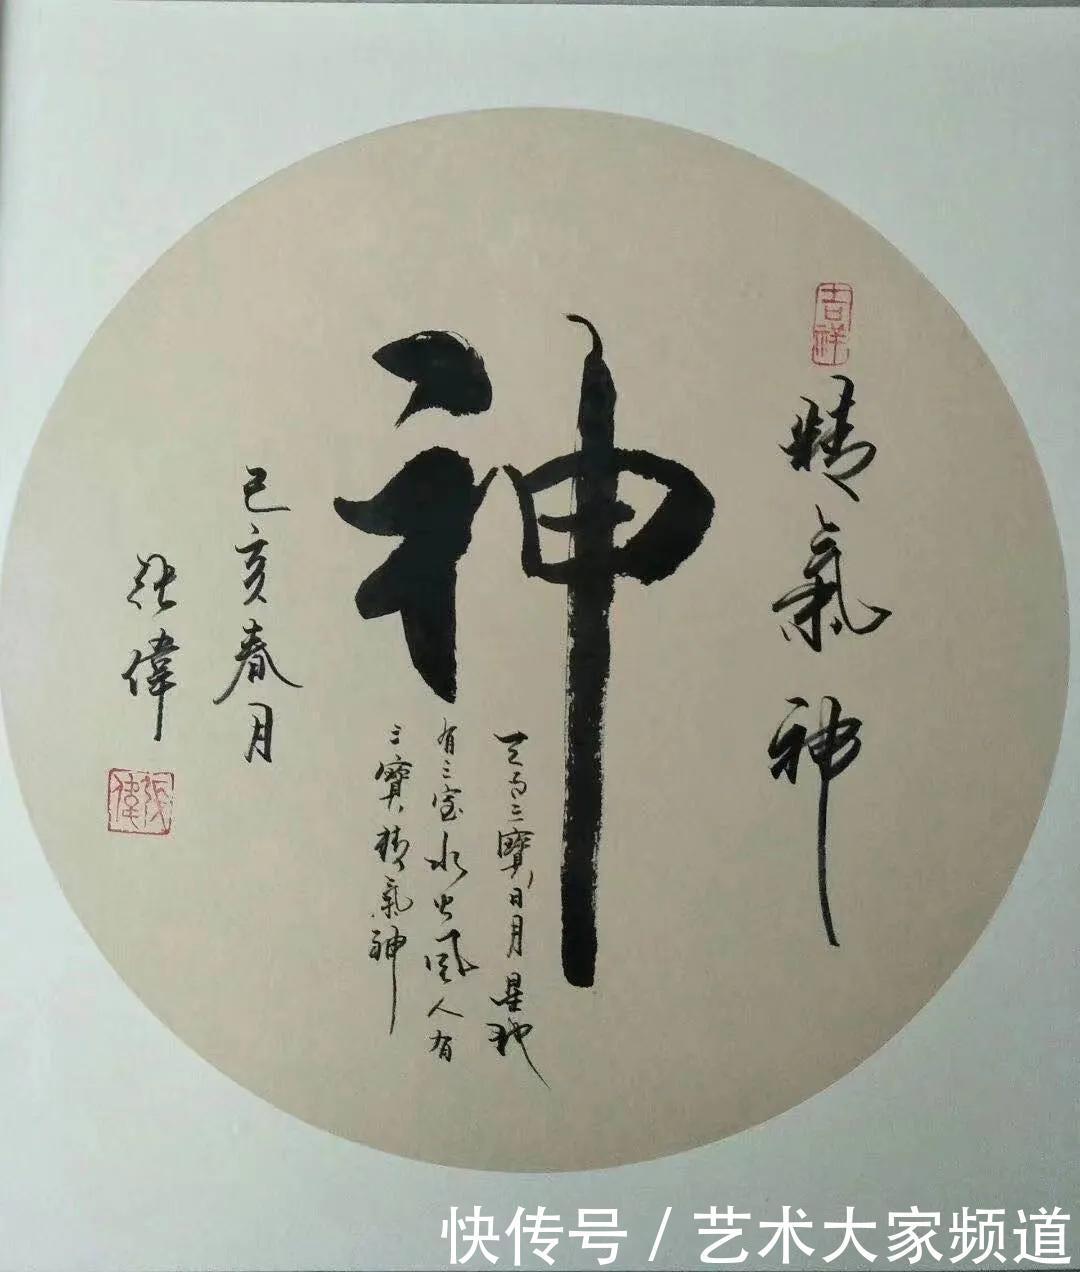 吉祥
精氣神
神
天有三寶日月星地
有三宝水火風人有
三寶精氣神
己亥春月
張偉
張偉
快传号 / 艺术大家频道